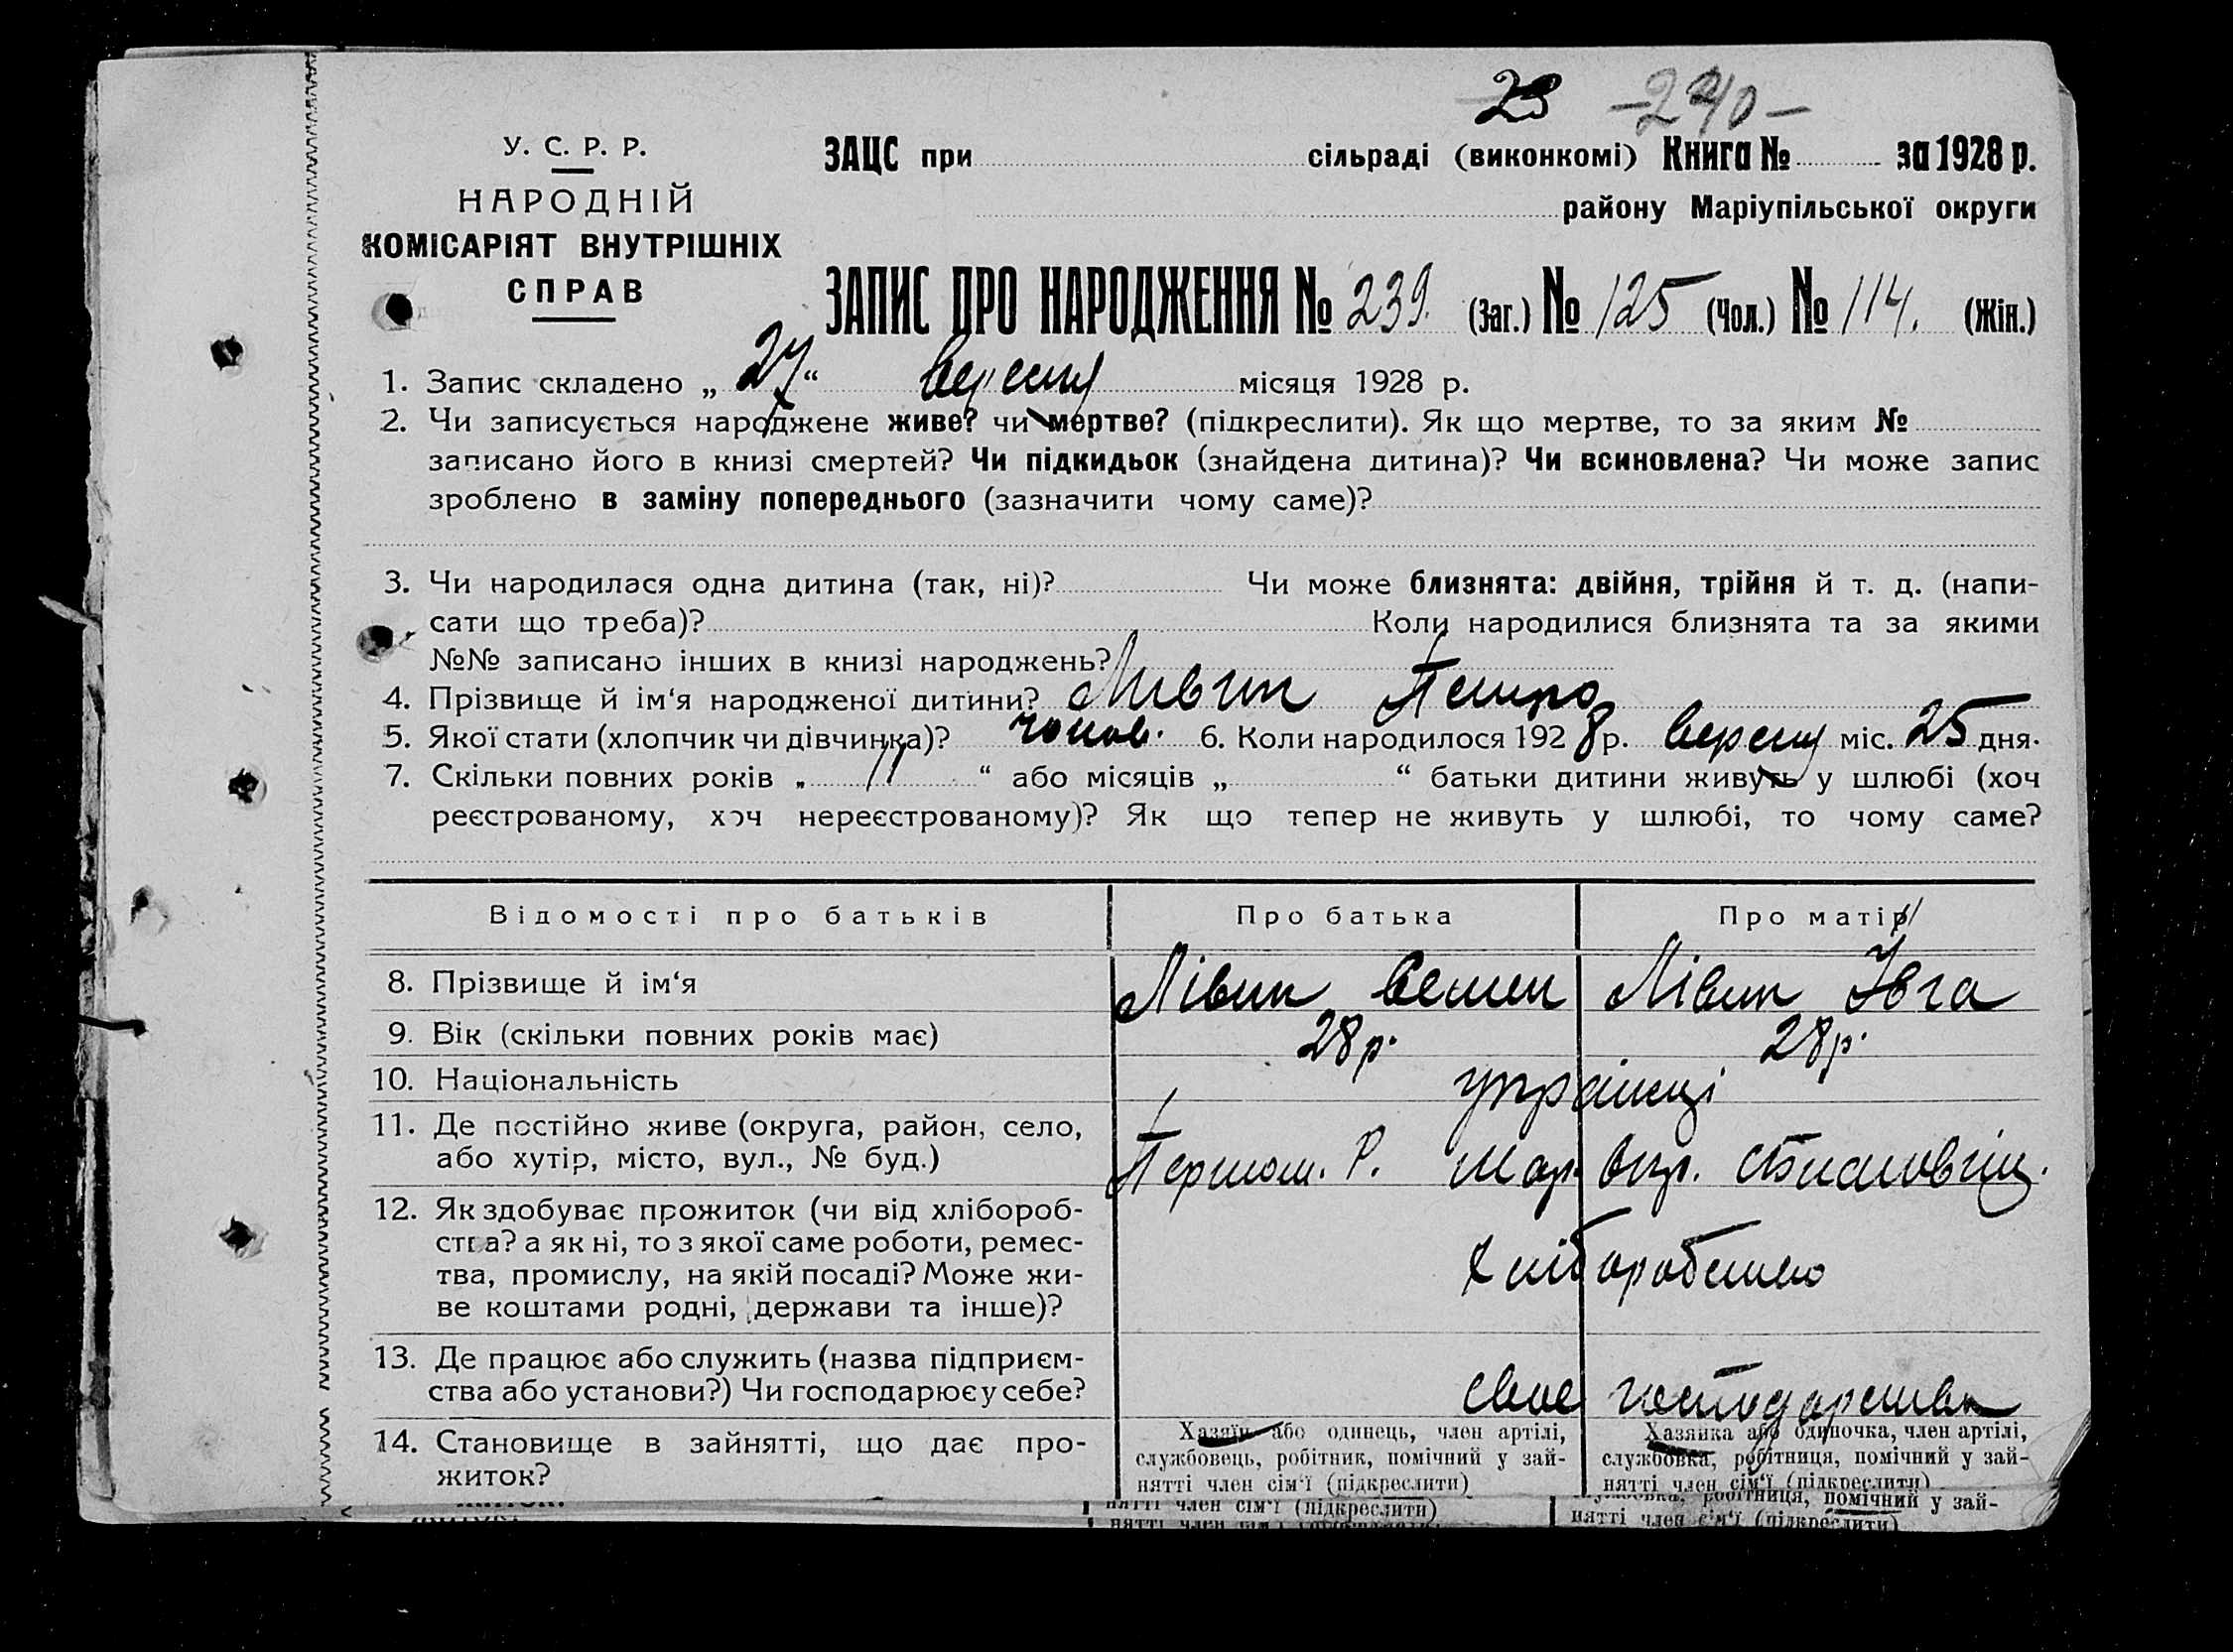 23 -240-
У. С. Р. Р.
НАРОДНІЙ
КОМІСАРІЯТ ВНУТРІШНІХ
СПРАВ
ЗАЦС при сільраді (виконкомі) Книга № за 1928 р.
району Маріупільської округи
ЗАПИС ПРО НАРОДЖЕННЯ № 239. (Заг.) № 125 (Чол.) № 114. (Жін.)
1. Запис складено „ 27 “ вересня місяця 1928 р.
2. Чи записується народжене живе? чи мертве? (підкреслити). Як що мертве, то за яким №
записано його в книзі смертей? Чи підкидьок (знайдена дитина)? Чи всиновлена? Чи може запис
зроблено в заміну попереднього (зазначити чому саме)?
3. Чи народилася одна дитина (так, ні)? Чи може близнята: двійня, трійня й т. д. (напи-
сати що треба)? Коли народилися близнята та за якими
№№ записано інших в книзі народжень?
4. Прізвище й ім‘я народженої дитини? Ливин Петро
5. Якої стати (хлопчик чи дівчинка)? чолов. 6. Коли народилося 1928 р. вересня міс. 25 дня.
7. Скільки повних років „ 11 “ або місяців „ “ батьки дитини живуть у шлюбі (хоч
реєстрованому, хоч нереєстрованому)? Як що тепер не живуть у шлюбі, то чому саме?
Відомості про батьків Про батька Про матір
8. Прізвище й ім‘я Лівин Лівин Івга
9. Вік (скільки повних років має) 28 р. 28 р.
10. Національність українці
11. Де постійно живе (округа, район, село,
або хутір, місто, вул., № буд.) Першом. Р. Мар. окр.
12. Як здобуває прожиток (чи від хлібороб-
ства? а як ні, то з якої саме роботи, ремес-
тва, промислу, на якій посаді? Може жи-
ве коштами родні, держави та інше)? Хліборобство
13. Де працює або служить (назва підприєм-
ства або установи?) Чи господарює у себе? свое господарство
14. Становище в зайнятті, що дає про-
житок?
Хазяїн або одинець, член артілі,
службовець, робітник, помічний у зай-
нятті член сім‘ї (підкреслити)
Хазяйка або одиночка, член артілі,
службовка, робітниця, помічний у зай-
нятті член сім‘ї (підкреслити)
нятті член сім‘ї (підкреслити)
робітниця, помічний у зай-
нятті член сім‘ї (підкреслити)